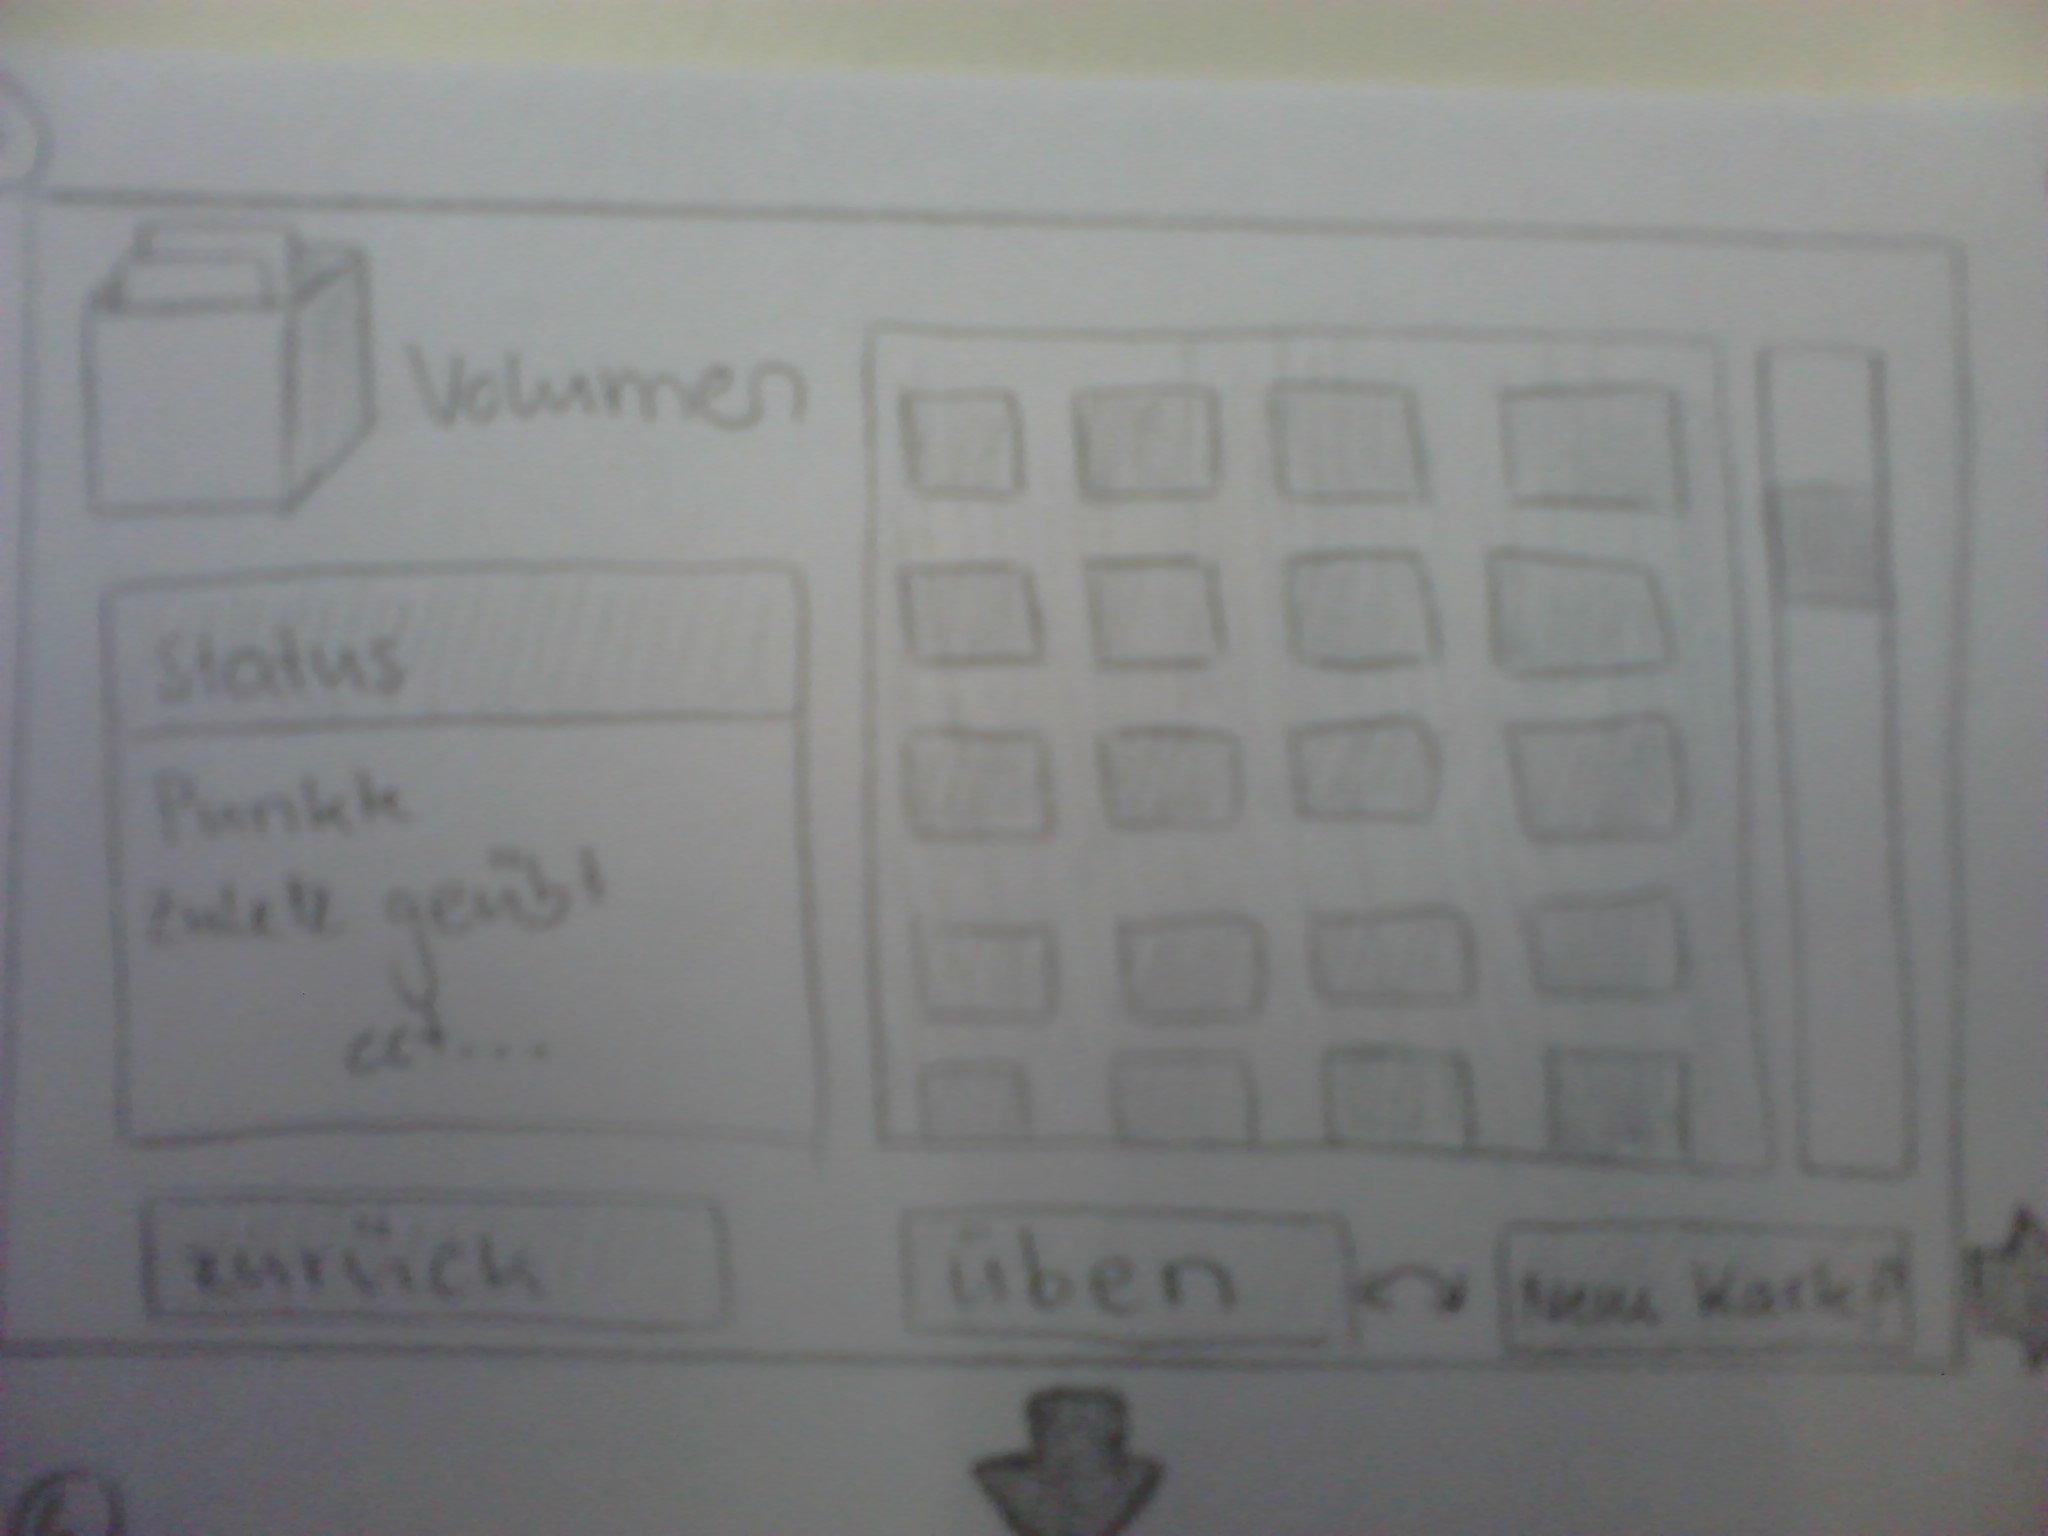 Volumen
Status
Punkte
zuletzt geübt
ect...
zurück
üben
Neue Karte